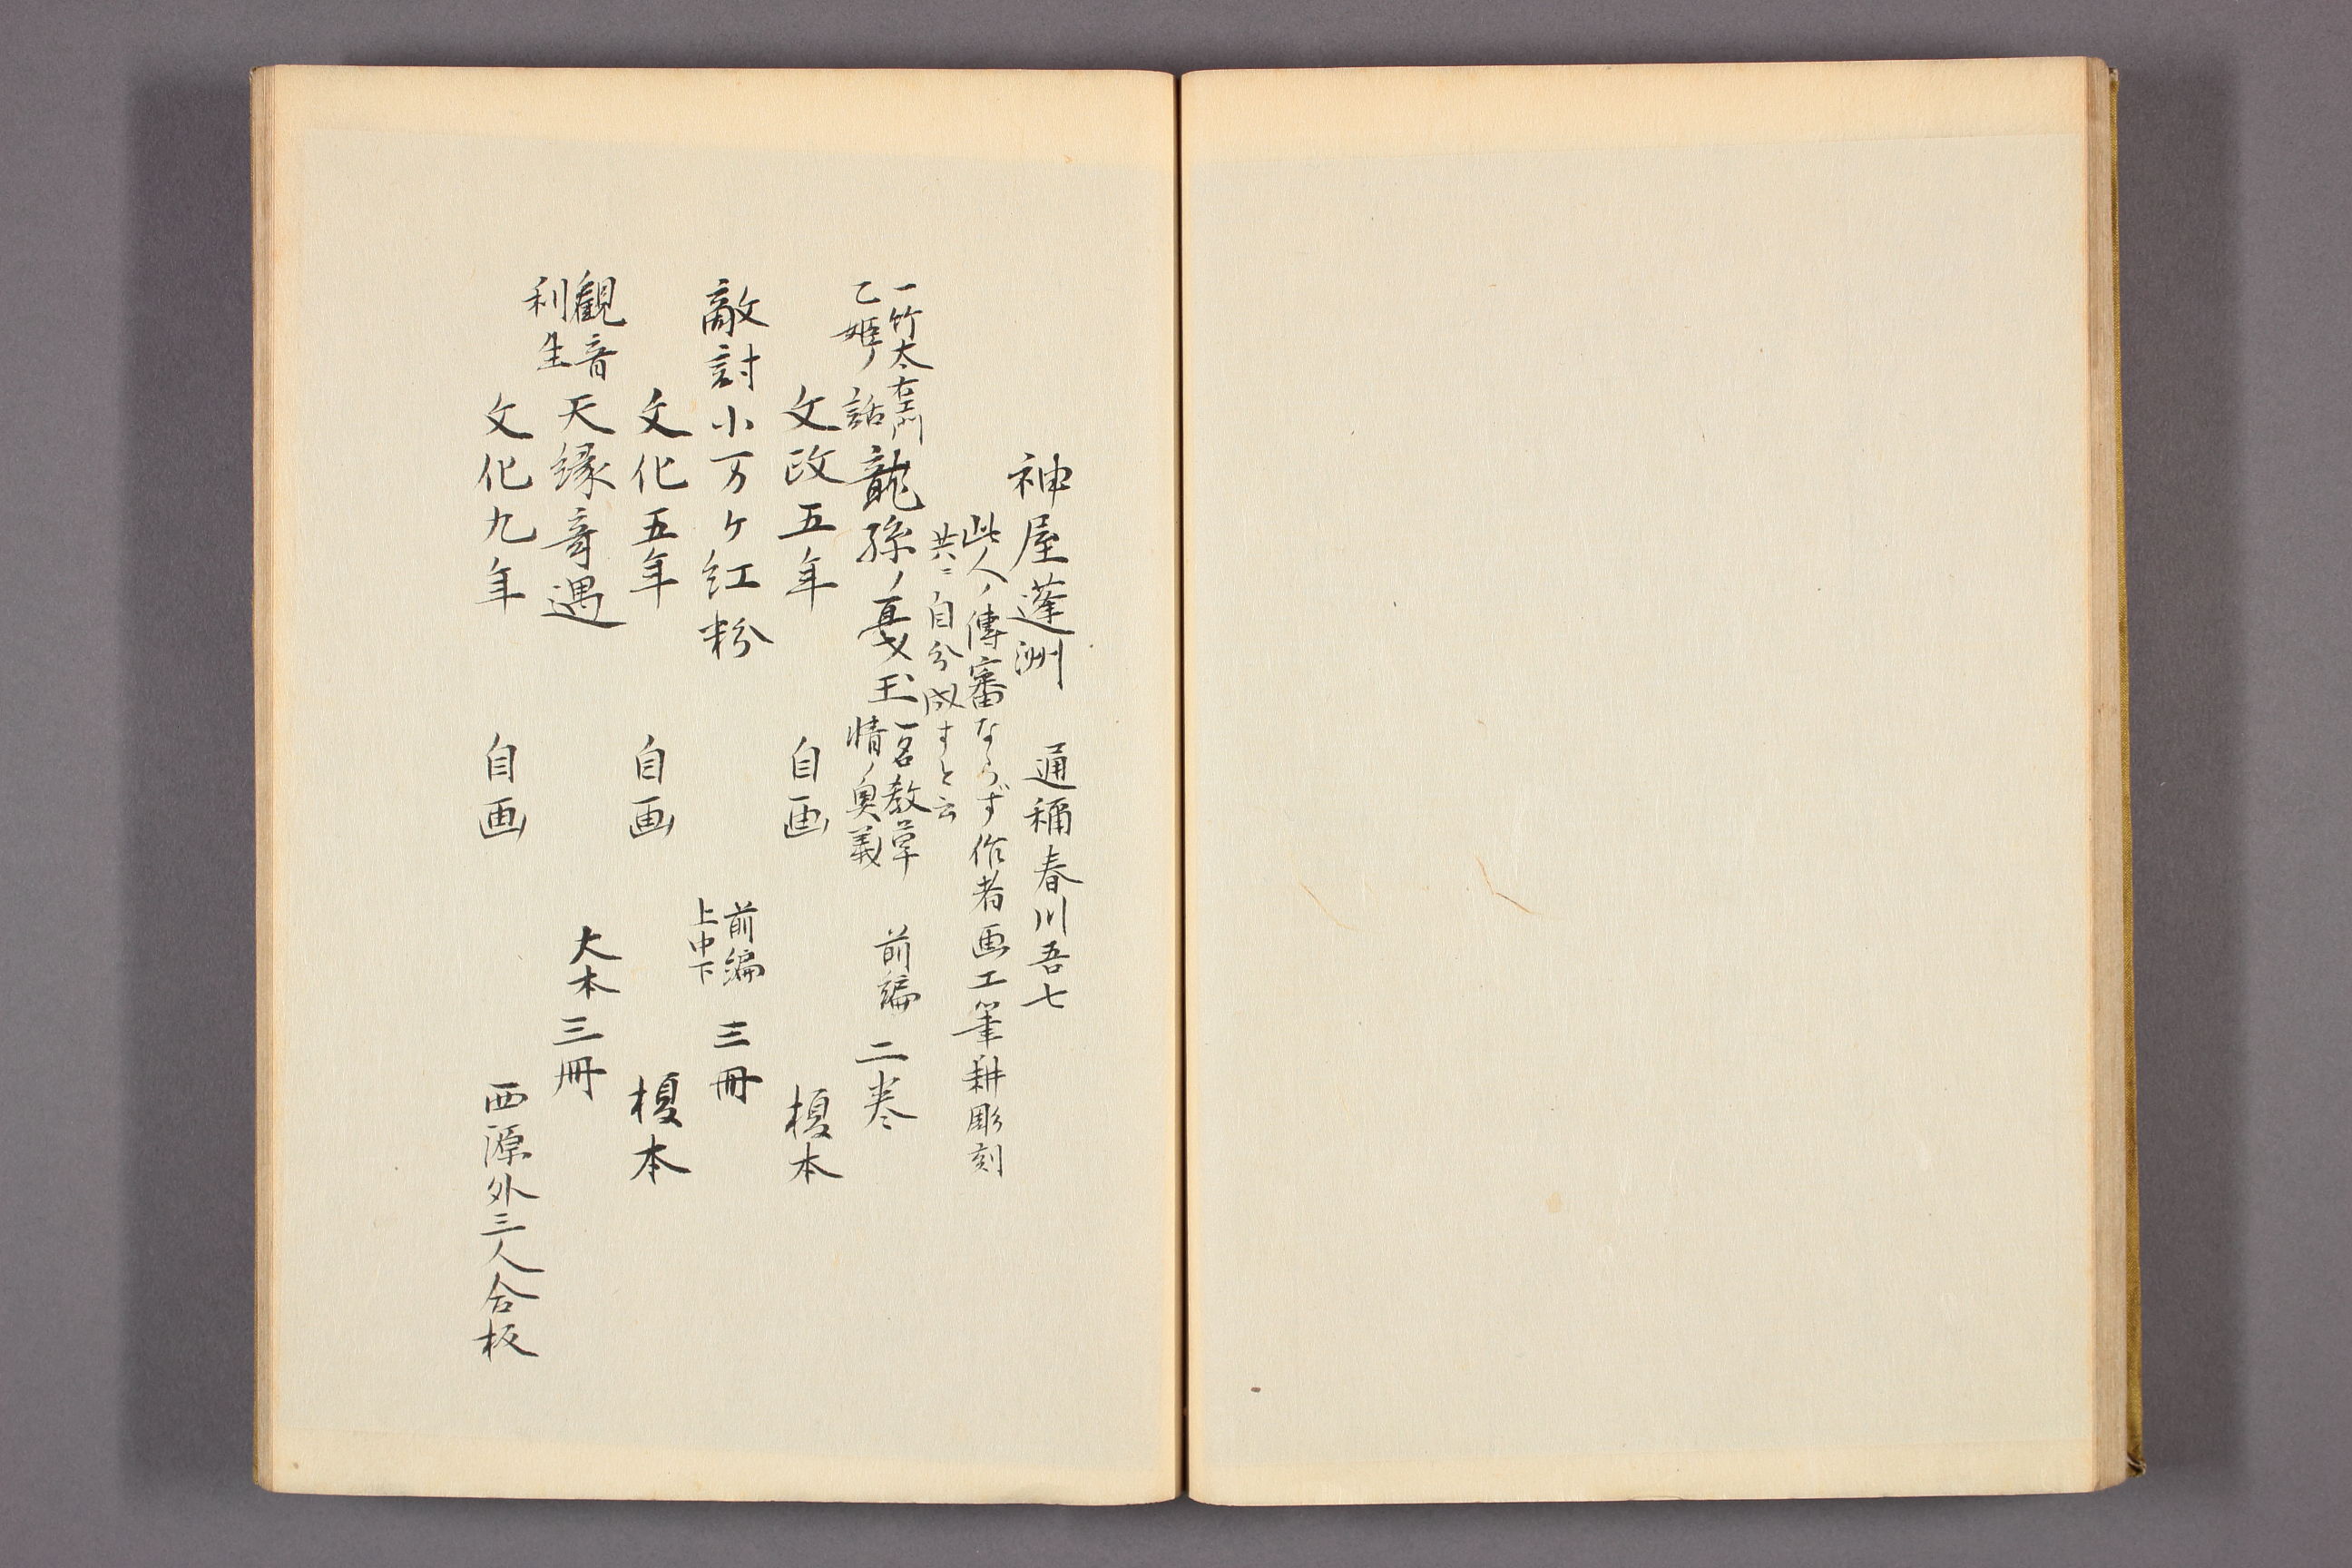 神屋蓬洲　通稱春川吾七
此人ノ傳審ならず作者画工筆耕彫刻
共ニ自分成すと云
一竹太右エ門
乙姫ノ話
龍孫ノ玉
一名教草
情ノ奥義
前編　二巻
文政五年　自画　榎本
敵討小万ケ紅粉
前編
上中下
三冊
文化五年　自画　榎本
觀音
利生
天縁奇遇　大本三冊
文化九年　自画　西源外三人合板